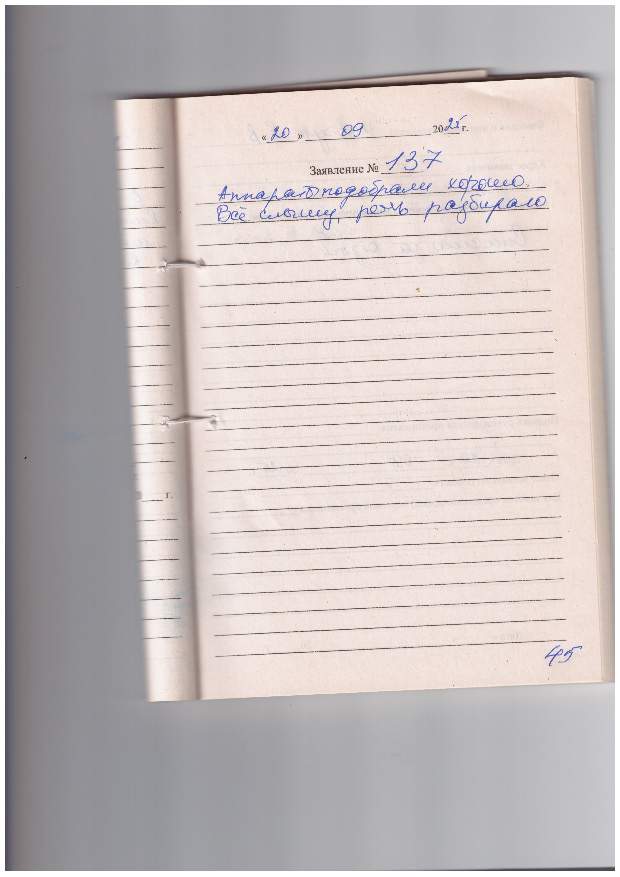 « 20 » 09 2025 г.
Заявление № 137
Аппараты подобрали хорошо.
Всё слышу, речь разбираю
г.
45